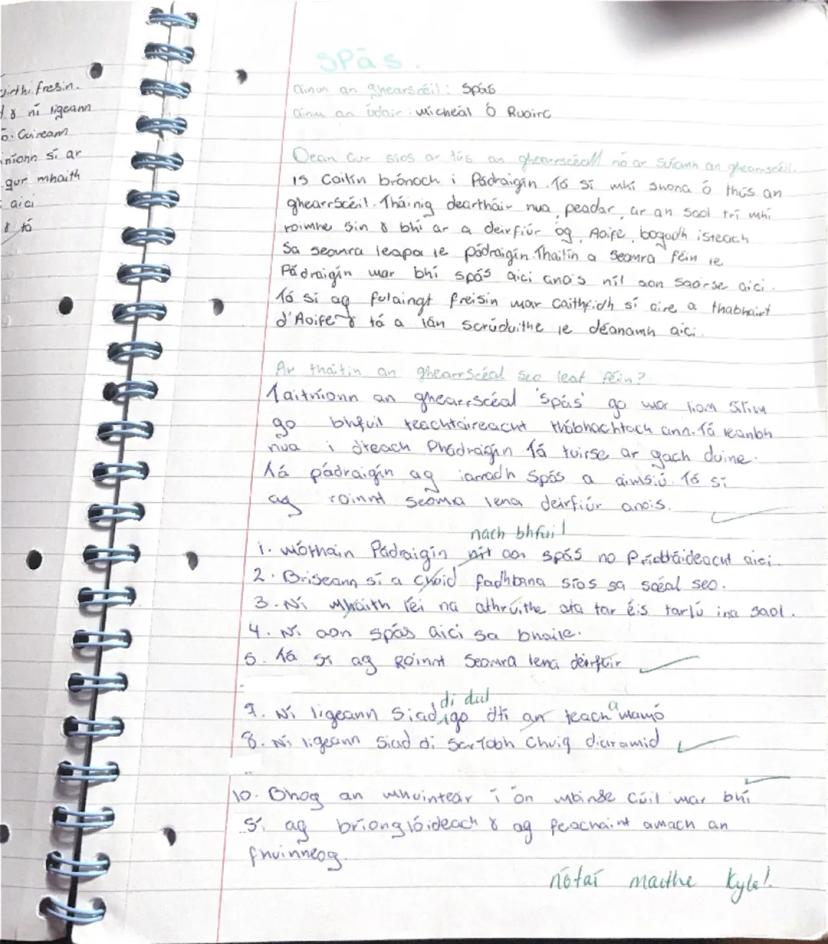 úirth freisin.
ní ligeann
Cuireann
níonn sí ar
gur mhaith
aici
tá
Spás.
ainm an ghearrscéil: Spás
ainm an údair: Mícheál Ó Ruairc
Déan cur síos ar tús an ghearrscéall nó ar suíomh an ghearrscéil.
Is Cailín brónach i Pádraigín. Tá sí mhí shona ó thús an
ghearrscéil. Tháinig deartháir nua, peadar, ar an saol trí mhí
roimhe sin & bhí ar a deirfiúr óg, Aoife, bogadh isteach
Sa seomra leapa le Pádraigín. Thaitin a seomra féin le
Pádraigín mar bhí spás aici anois níl aon saoirse aici.
Tá sí ag fulaingt freisin mar caithfidh sí aire a thabhairt
d'Aoife & tá a lán scrúduithe le déanamh aici.
Ar thaitin an ghearrscéal seo leat féin?
Taitníonn an ghearrscéal 'Spás' go mór liom Sílim
go bhfuil teachtaireacht thábhachtach ann. Tá leanbh
nua i dteach Phádraigín Tá tuirse ar gach duine.
Tá pádraigín ag iarradh Spás a aimsiú. Tá sí
ag roinnt seomra lena deirfiúr anois.
nach bhfuil
1. Mothaín Pádraigín níl aon spás no Príobháideacht aici.
2. Briseann sí a choid fadhbana síos sa scéal seo.
3. Ní mhaith léi na athruithe ata tar éis tarlú ina saol.
4. Ní aon spás aici sa bhaile.
5. Tá sí ag Roinnt Seomra lena deirfúir
di dul
7. Ní ligeann Siad go dtí an teach a mamó
8. Ní ligeann Siad di chuig diaramid
10. Bhog an mhúinteár í ón mbinse cúil mar bhí
Sí ag brionglóideach & ag feachaint amach an
fhuinneog.
nótaí maithe Kyle!